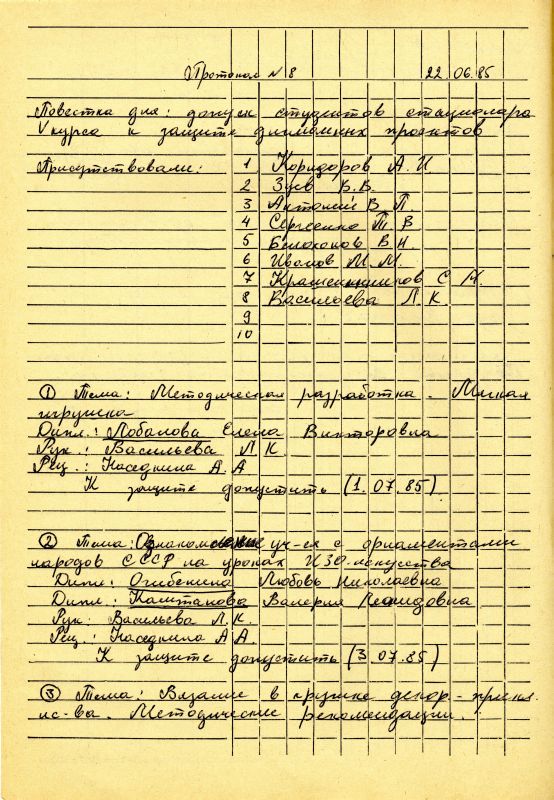 Протокол № 8 22.06.85
Повестка дня: допуск студентов стационара
V курса к защите дипломных проектов
Присутствовали: 1 Коридоров А. И
2 Зуев В. В.
3 Антоний В П.
4 Сергеенко Т В
5 Белоконов В Н.
6 Иванов М. М.
7 Крашенинников С Н.
8 Васильева Л К.
9
10
① Тема: Методическая разработка. Мягкая
игрушка
Дипл.: Лобалова Елена Викторовна
Рук: Васильева Л К
Рец.: Наседкина А. А
К защите допустить (1.07.85)
② Тема: Ознакомление уч-ся с орнаментами
народов СССР на уроках ИЗО-искусства
Дипл: Огибенина Любовь Николаевна
Дипл: Каштанова Валерия Леонидовна
Рук: Васильева Л. К.
Рец.: Наседкина А А.
К защите допустить (3 07.85)
③ Тема: Вязание в кружке декор-прикл.
ис-ва. Методические рекомендации.